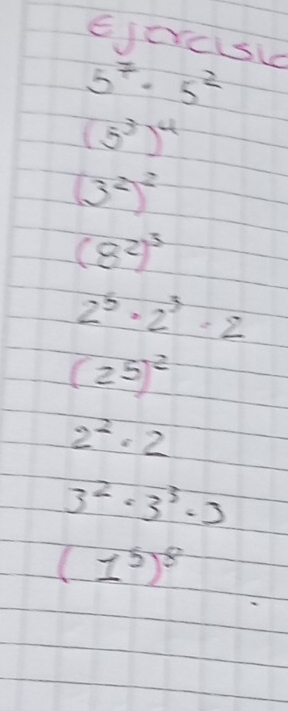 Ejercisio
5⁷ · 5²
(5³)⁴
(3²)²
(8²)³
2⁵ · 2³ · 2
(2⁵)²
2² · 2
3² · 3³ · 3
(1⁵)⁸